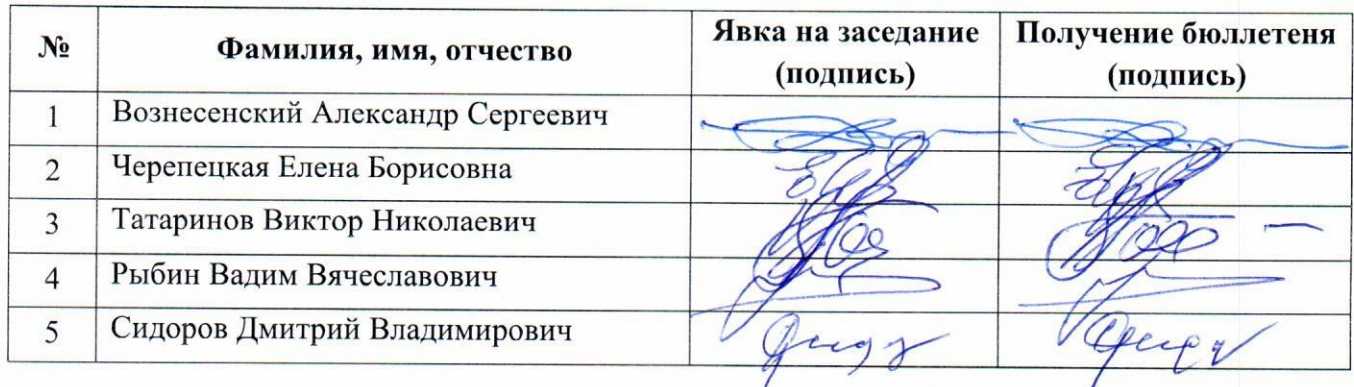 № Фамилия, имя, отчество Явка на заседание (подпись) Получение бюллетеня (подпись)
1 Вознесенский Александр Сергеевич
2 Черепецкая Елена Борисовна
3 Татаринов Виктор Николаевич
4 Рыбин Вадим Вячеславович
5 Сидоров Дмитрий Владимирович